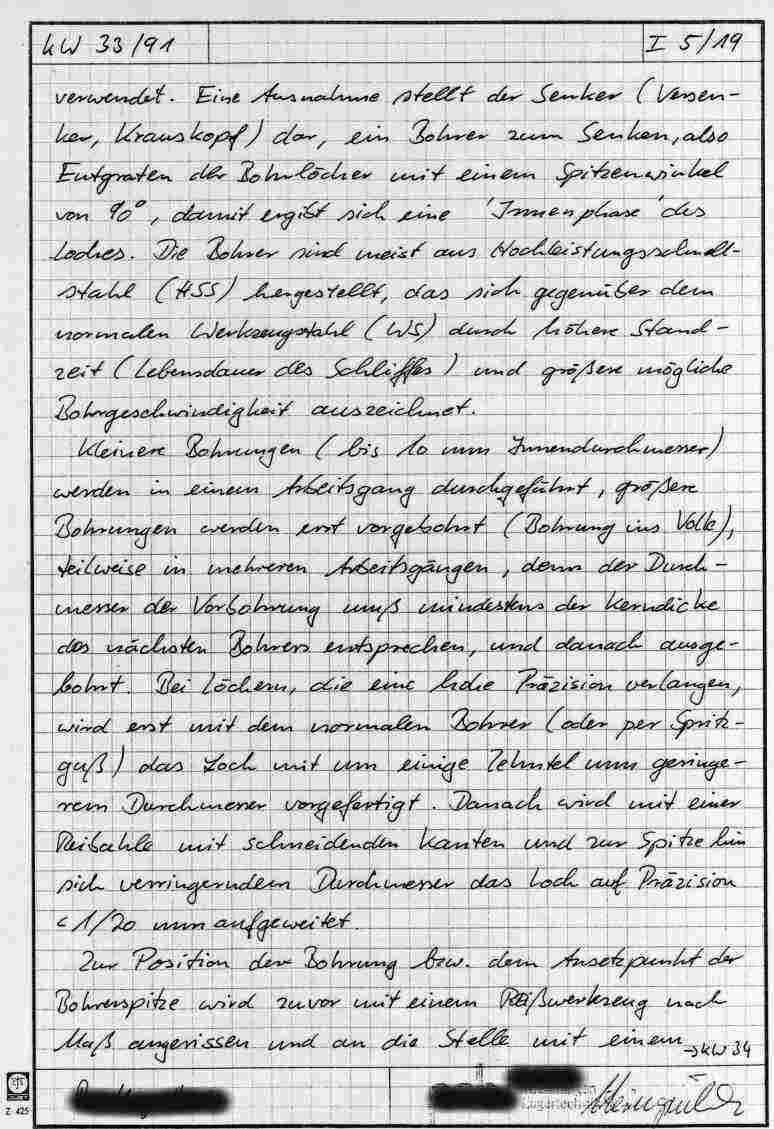 KW 33/91
I 5/19
verwendet. Eine Ausnahme stellt der Senker (Versen-
ker, Krauskopf) dar, ein Bohrer zum Senken, also
Entgraten der Bohrlöcher mit einem Spitzenwinkel
von 90°, damit ergibt sich eine 'Innenphase' des
Loches. Die Bohrer sind meist aus Hochleistungsschnell-
stahl (HSS) hergestellt, das sich gegenüber dem
normalen Werkzeugstahl (WS) durch höhere Stand-
zeit (Lebensdauer des Schliffes) und größere mögliche
Bohrgeschwindigkeit auszeichnet.
Kleinere Bohrungen (bis 10 mm Innendurchmesser)
werden in einem Arbeitsgang durchgeführt, größere
Bohrungen werden erst vorgebohrt (Bohrung ins Volle),
teilweise in mehreren Arbeitsgängen, denn der Durch-
messer der Vorbohrung muß mindestens der Kerndicke
des nächsten Bohrers entsprechen, und danach ausge-
bohrt. Bei Löchern, die eine hohe Präzision verlangen,
wird erst mit dem normalen Bohrer (oder per Spritz-
guß) das Loch mit um einige Zehntel mm geringe-
rem Durchmesser vorgefertigt. Danach wird mit einer
Reibahle mit schneidenden Kanten und zur Spitze hin
sich verringerndem Durchmesser das Loch auf Präzision
< 1/20 mm aufgeweitet.
Zur Position der Bohrung bzw. dem Ansetzpunkt der
Bohrerspitze wird zuvor mit einem Reißwerkzeug nach
Maß angerissen und an die Stelle mit einem
→KW 34
Z 425